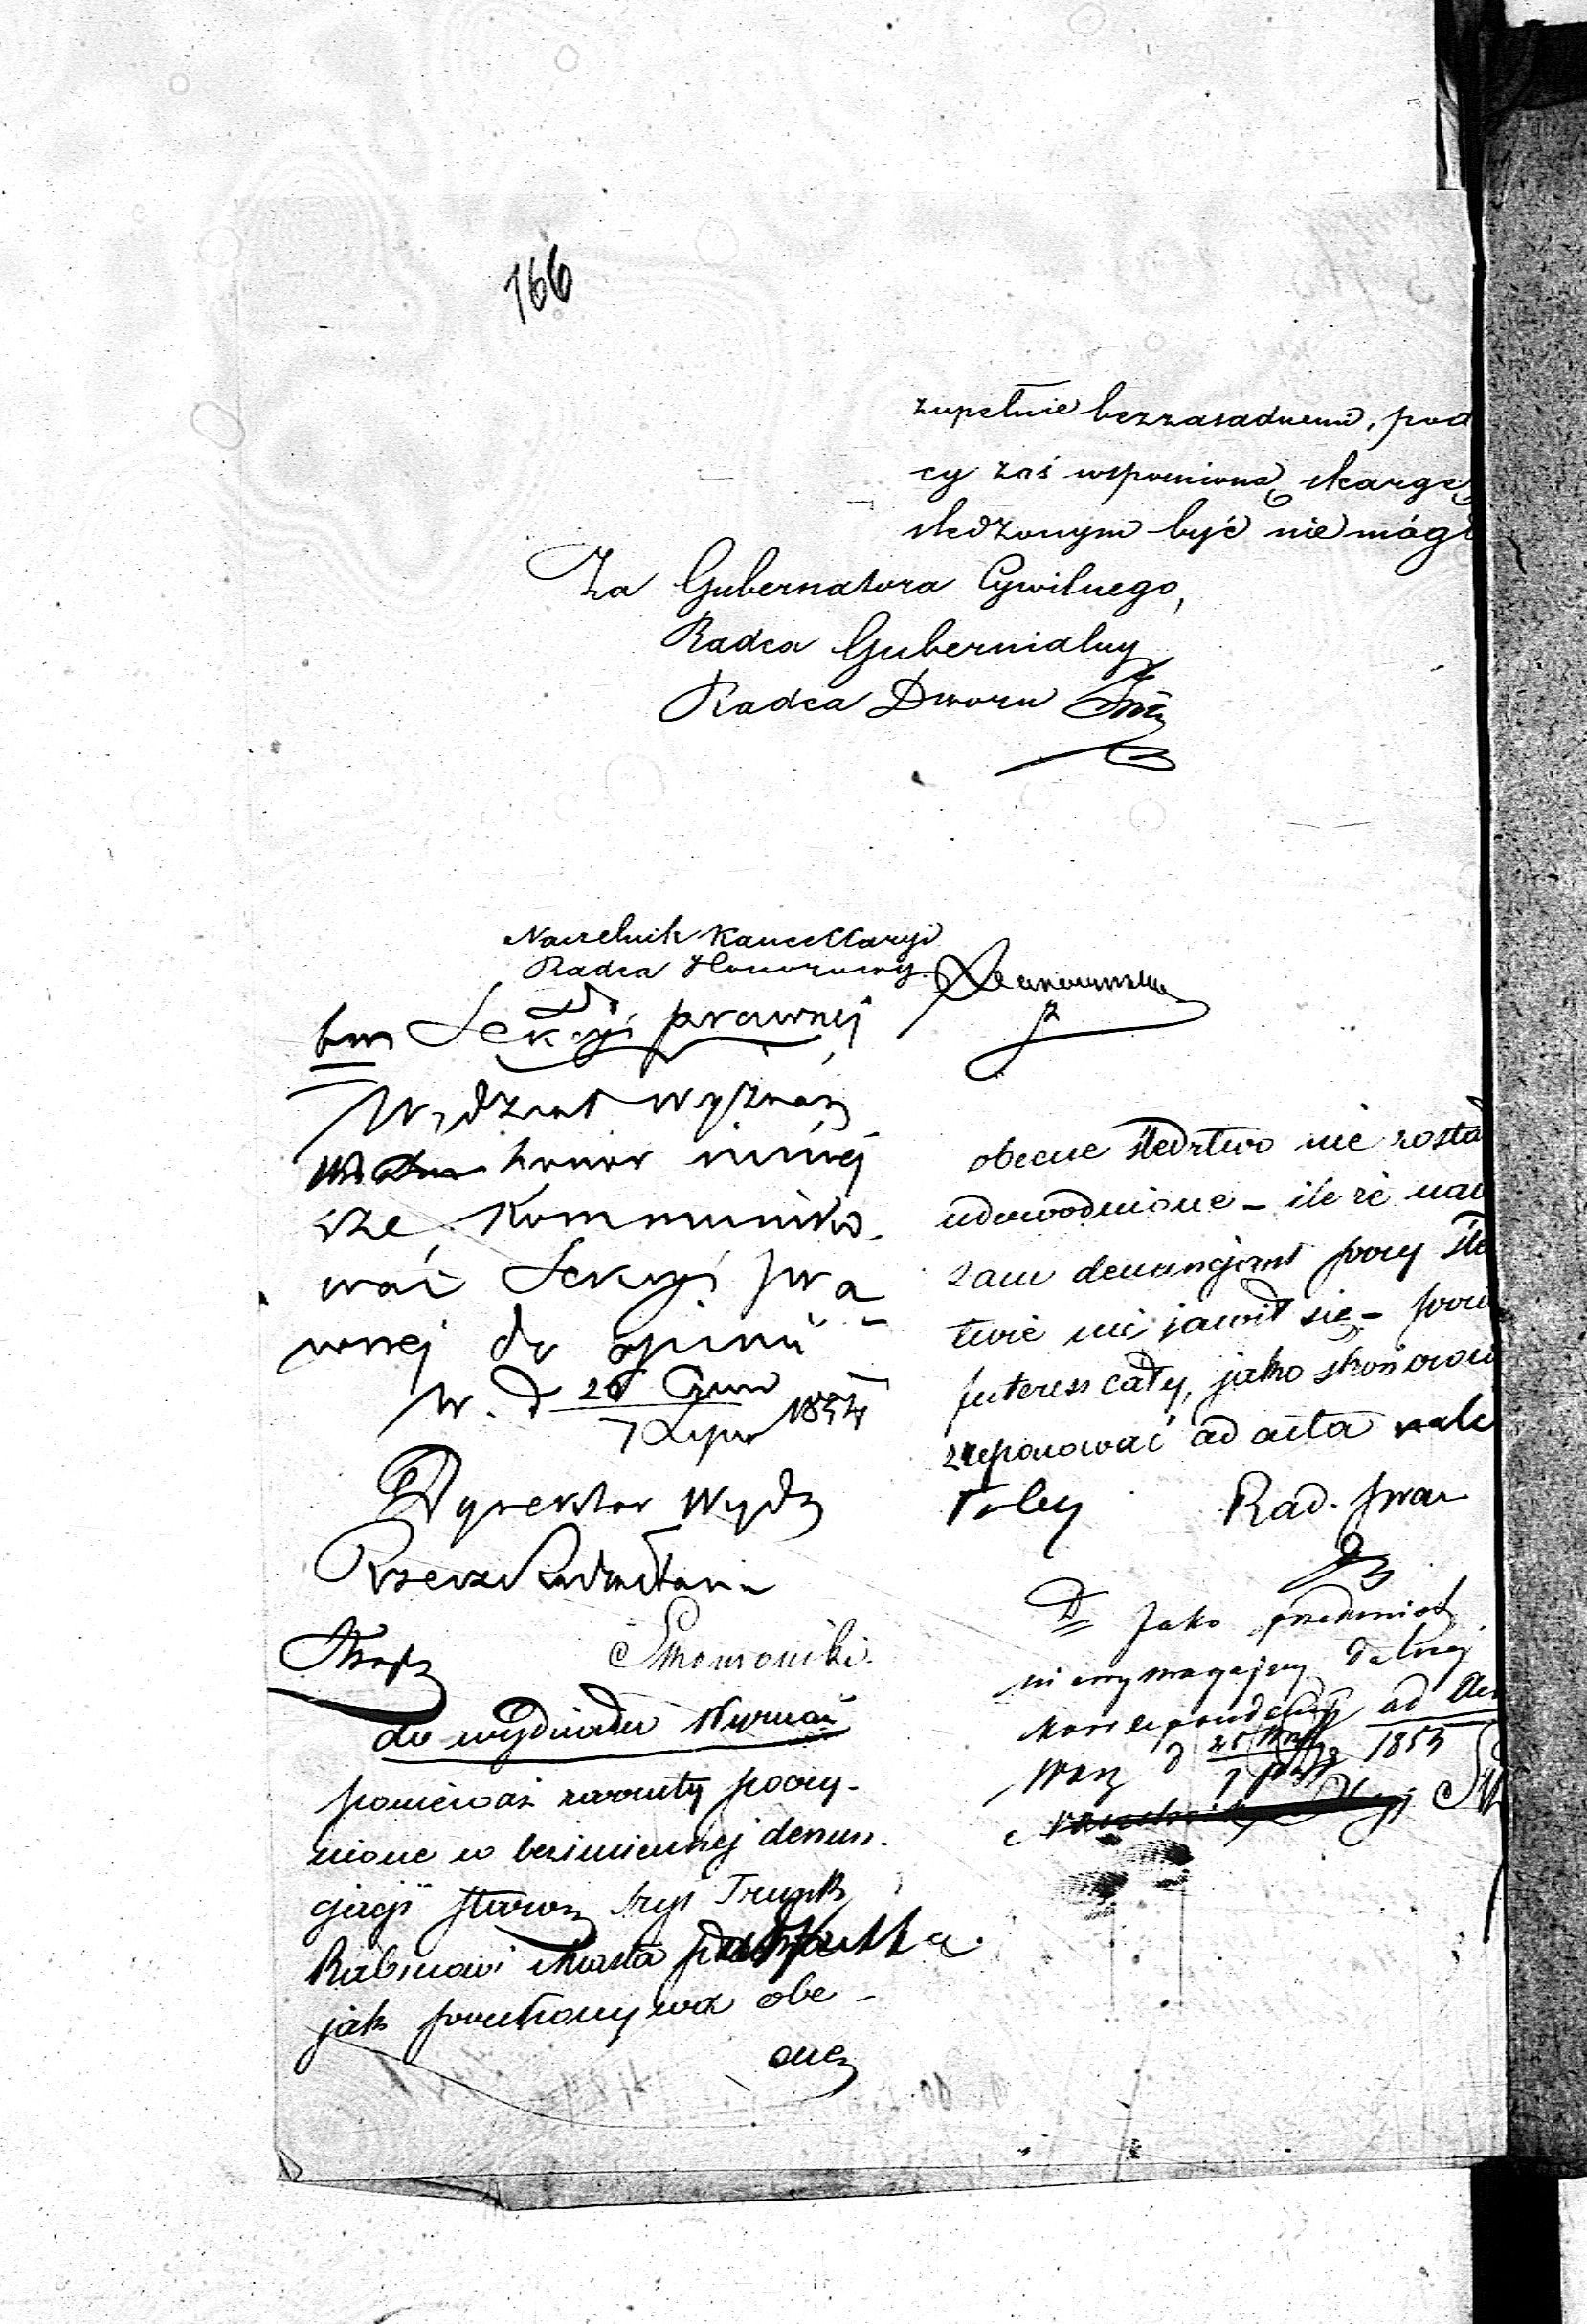 166
zupełnie bezzasadnemi, pod
cy zaś wspomnioną skargę
śledzonym być nie mógł
Za Gubernatora Cywilnego,
Radca Gubernialny
Radca Dworu
Naczelnik Kancellaryi
Radca Honorowy
Do
Sekcyi prawnej
Wydział Wyznań
honor niniej
sze kommuniko-
wać Sekcyi pra
wnej do opinii
W. d 26 Czerw
7 Lipca 1854
Dyrektor Wydz
Rzeczy. Radca Stanu
do wydziału Wyznań
ponieważ zarzuty poczy-
nione w bezimiennej denun-
cjacji Staroz. Szyi Trunk
Rabinowi Miasta
jak przekonywa obe-
cnez
obecne śledztwo nie zosta
udowodnione - ile że nad
zam denuncjant przy śle
twie nie jawił się - przeto
interess cały, jako skończony
zreponować ad acta nale
żałoby Rad. praw
Jako przedmiot
niewymagający dalszej
korrespondencyi ad Act
Warz d
1854